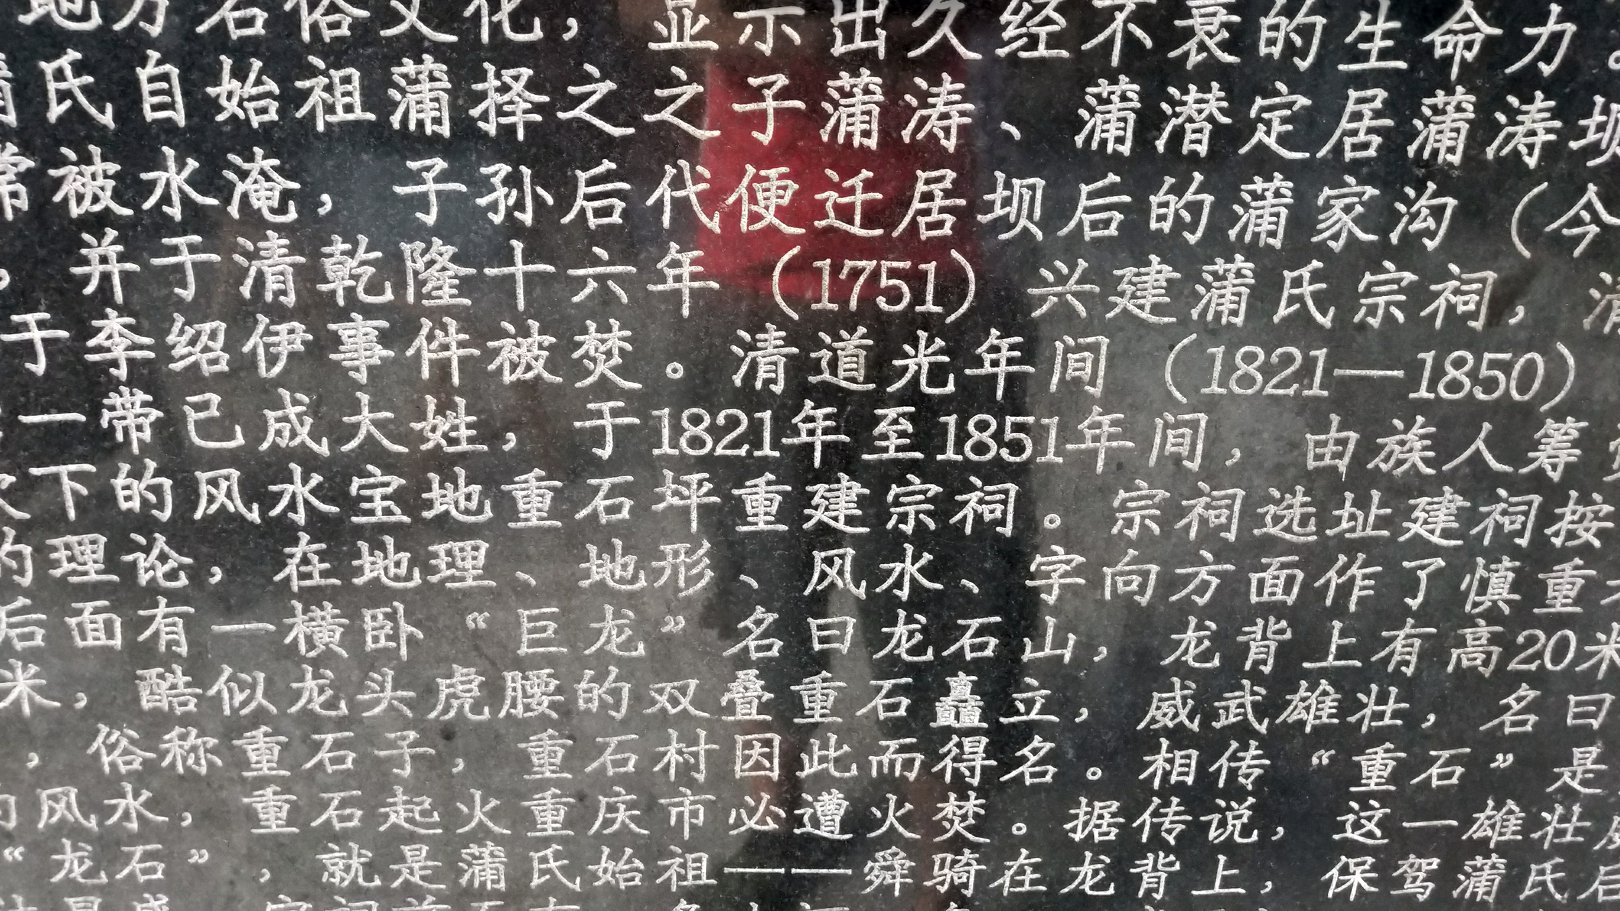 地方名俗文化，显示出久经不衰的生命力。
蒲氏自始祖蒲择之之子蒲涛、蒲潜定居蒲涛坝
常被水淹，子孙后代便迁居坝后的蒲家沟（今
，并于清乾隆十六年（1751）兴建蒲氏宗祠，清
于李绍伊事件被焚。清道光年间（1821—1850）
一带已成大姓，于1821年至1851年间，由族人筹
下的风水宝地重石坪重建宗祠。宗祠选址建祠按
的理论，在地理、地形、风水、字向方面作了慎重
后面有一横卧“巨龙”名曰龙石山，龙背上有高20米
米，酷似龙头虎腰的双叠重石矗立，威武雄壮，名曰
，俗称重石子，重石村因此而得名。相传“重石”是
的风水，重石起火重庆市必遭火焚。据传说，这一雄壮
“龙石”，就是蒲氏始祖——舜骑在龙背上，保驾蒲氏后